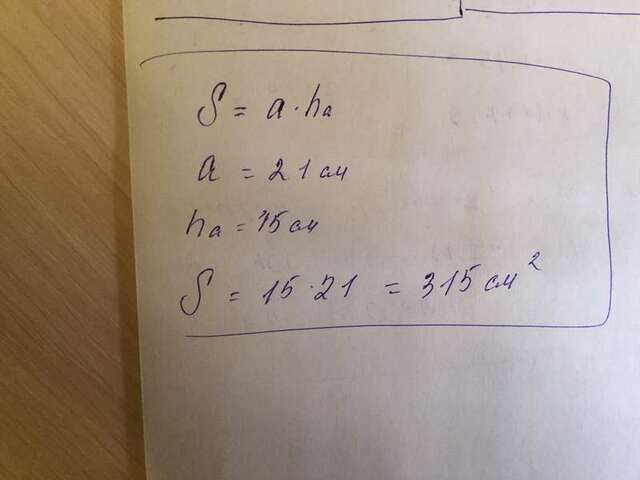 S = a · ha
a = 21 см
ha = 15 см
S = 15 · 21 = 315 см²